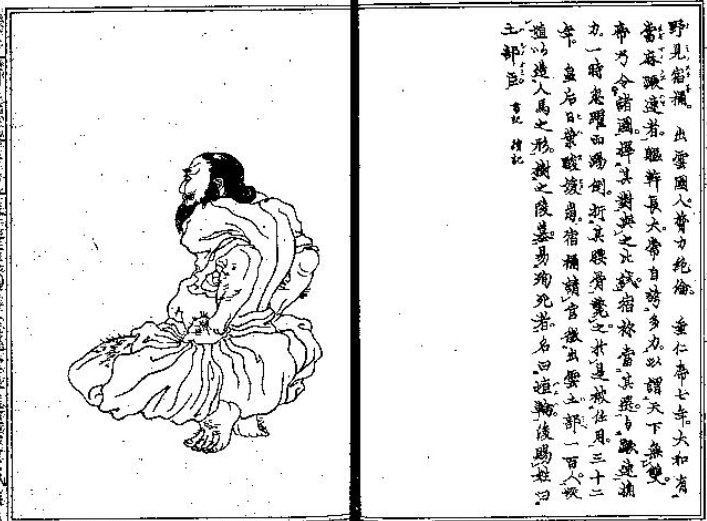 野見宿禰 出雲國人膂力絶倫 垂仁帝七年大和有
當麻蹶速者軀幹長大常自誇多力以謂天下無雙
帝乃令諸國擇其對與之比試宿祢當其選与蹶速捔
力一時忽躍而踢倒折其腰骨斃之於是被任用三十二
年 皇后日葉酸媛崩宿禰請官徴出雲土部一百人埏
埴以造人馬之形樹之陵墓易殉死者名曰埴輪後賜姓曰
土部臣 書記 續記